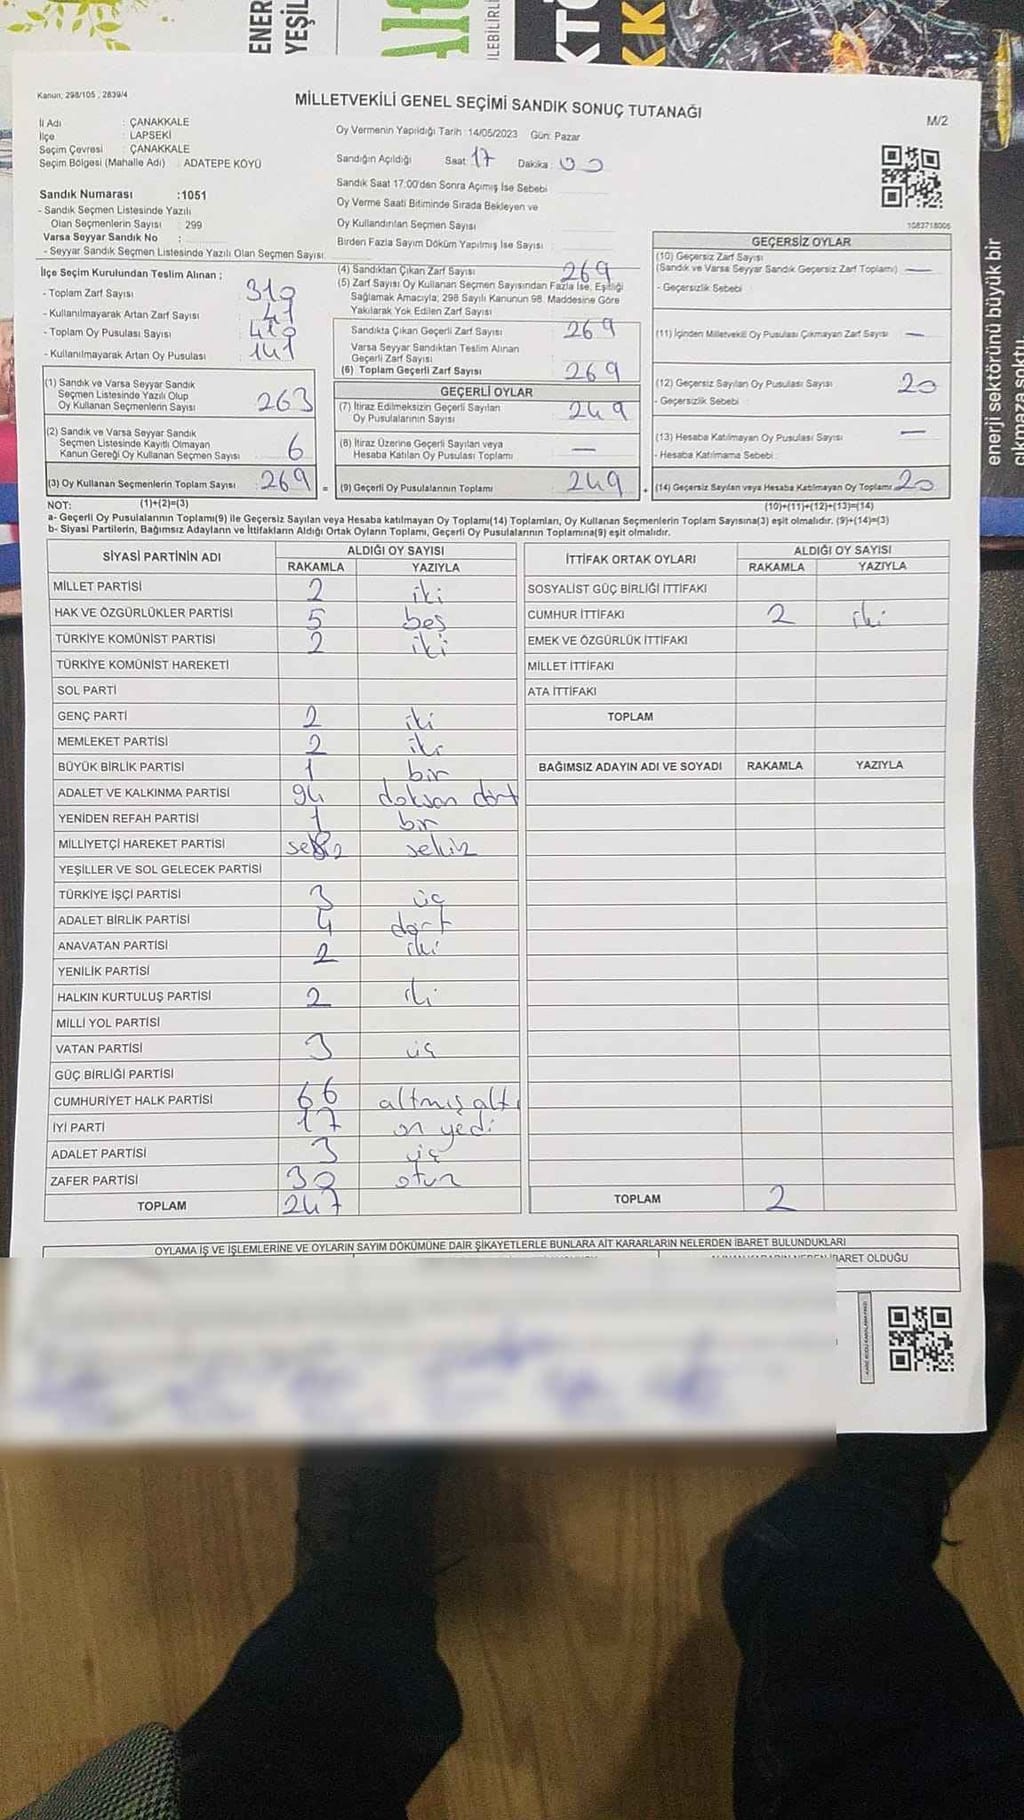 ENER
YEŞİL
LEBİLİRLİ
KTÖ
KK
Kanun; 298/105 ; 2839/4
MİLLETVEKİLİ GENEL SEÇİMİ SANDIK SONUÇ TUTANAĞI
M/2
İl Adı : ÇANAKKALE
İlçe : LAPSEKİ
Seçim Çevresi : ÇANAKKALE
Seçim Bölgesi (Mahalle Adı) : ADATEPE KÖYÜ
Oy Vermenin Yapıldığı Tarih : 14/05/2023 Gün: Pazar
Sandığın Açıldığı Saat 17 Dakika: 00
Sandık Saat 17:00'den Sonra Açımış İse Sebebi
Oy Verme Saati Bitiminde Sırada Bekleyen ve
Oy Kullandırılan Seçmen Sayısı
Birden Fazla Sayım Döküm Yapılmış İse Sayısı
1082718006
Sandık Numarası :1051
- Sandık Seçmen Listesinde Yazılı
Olan Seçmenlerin Sayısı : 299
Varsa Seyyar Sandık No :
- Seyyar Sandık Seçmen Listesinde Yazılı Olan Seçmen Sayısı:
İlçe Seçim Kurulundan Teslim Alınan ;
- Toplam Zarf Sayısı 310
- Kullanılmayarak Artan Zarf Sayısı 41
- Toplam Oy Pusulası Sayısı 410
- Kullanılmayarak Artan Oy Pusulası 141
(1) Sandık ve Varsa Seyyar Sandık
Seçmen Listesinde Yazılı Olup
Oy Kullanan Seçmenlerin Sayısı 263
(2) Sandık ve Varsa Seyyar Sandık
Seçmen Listesinde Kayıtlı Olmayan
Kanun Gereği Oy Kullanan Seçmen Sayısı 6
(3) Oy Kullanan Seçmenlerin Toplam Sayısı 269 =
(4) Sandıktan Çıkan Zarf Sayısı 269
(5) Zarf Sayısı Oy Kullanan Seçmen Sayısından Fazla İse, Eşitliği
Sağlamak Amacıyla; 298 Sayılı Kanunun 98. Maddesine Göre
Yakılarak Yok Edilen Zarf Sayısı
Sandıkta Çıkan Geçerli Zarf Sayısı 269
Varsa Seyyar Sandıktan Teslim Alınan
Geçerli Zarf Sayısı
(6) Toplam Geçerli Zarf Sayısı 269
GEÇERLİ OYLAR
(7) İtiraz Edilmeksizin Geçerli Sayılan
Oy Pusulalarının Sayısı 249
(8) İtiraz Üzerine Geçerli Sayılan veya
Hesaba Katılan Oy Pusulası Toplamı —
(9) Geçerli Oy Pusulalarının Toplamı 249 +
GEÇERSİZ OYLAR
(10) Geçersiz Zarf Sayısı
(Sandık ve Varsa Seyyar Sandık Geçersiz Zarf Toplamı) —
- Geçersizlik Sebebi :
(11) İçinden Milletvekili Oy Pusulası Çıkmayan Zarf Sayısı —
(12) Geçersiz Sayılan Oy Pusulası Sayısı 20
- Geçersizlik Sebebi :
(13) Hesaba Katılmayan Oy Pusulası Sayısı —
- Hesaba Katılmama Sebebi :
(14) Geçersiz Sayılan veya Hesaba Katılmayan Oy Toplamı 20
NOT: (1)+(2)=(3) (10)+(11)+(12)+(13)=(14)
a- Geçerli Oy Pusulalarının Toplamı(9) ile Geçersiz Sayılan veya Hesaba katılmayan Oy Toplamı(14) Toplamları, Oy Kullanan Seçmenlerin Toplam Sayısına(3) eşit olmalıdır. (9)+(14)=(3)
b- Siyasi Partilerin, Bağımsız Adayların ve İttifakların Aldığı Ortak Oyların Toplamı, Geçerli Oy Pusulalarının Toplamına(9) eşit olmalıdır.
SİYASİ PARTİNİN ADI ALDIĞI OY SAYISI
RAKAMLA YAZIYLA
MİLLET PARTİSİ 2 iki
HAK VE ÖZGÜRLÜKLER PARTİSİ 5 beş
TÜRKİYE KOMÜNİST PARTİSİ 2 iki
TÜRKİYE KOMÜNİST HAREKETİ
SOL PARTİ
GENÇ PARTİ 2 iki
MEMLEKET PARTİSİ 2 iki
BÜYÜK BİRLİK PARTİSİ 1 bir
ADALET VE KALKINMA PARTİSİ 94 doksan dört
YENİDEN REFAH PARTİSİ 1 bir
MİLLİYETÇİ HAREKET PARTİSİ 8 sekiz
YEŞİLLER VE SOL GELECEK PARTİSİ
TÜRKİYE İŞÇİ PARTİSİ 3 üç
ADALET BİRLİK PARTİSİ 4 dört
ANAVATAN PARTİSİ 2 iki
YENİLİK PARTİSİ
HALKIN KURTULUŞ PARTİSİ 2 iki
MİLLİ YOL PARTİSİ
VATAN PARTİSİ 3 üç
GÜÇ BİRLİĞİ PARTİSİ
CUMHURİYET HALK PARTİSİ 66 altmış altı
İYİ PARTİ 17 on yedi
ADALET PARTİSİ 3 üç
ZAFER PARTİSİ 30 otuz
TOPLAM 247
İTTİFAK ORTAK OYLARI ALDIĞI OY SAYISI
RAKAMLA YAZIYLA
SOSYALİST GÜÇ BİRLİĞİ İTTİFAKI
CUMHUR İTTİFAKI 2 iki
EMEK VE ÖZGÜRLÜK İTTİFAKI
MİLLET İTTİFAKI
ATA İTTİFAKI
TOPLAM
BAĞIMSIZ ADAYIN ADI VE SOYADI RAKAMLA YAZIYLA
TOPLAM 2
OYLAMA İŞ VE İŞLEMLERİNE VE OYLARIN SAYIM DÖKÜMÜNE DAİR ŞİKAYETLERLE BUNLARA AİT KARARLARIN NELERDEN İBARET BULUNDUKLARI
İBARET OLDUĞU
enerji sektörünü büyük bir
çıkmaza soktu